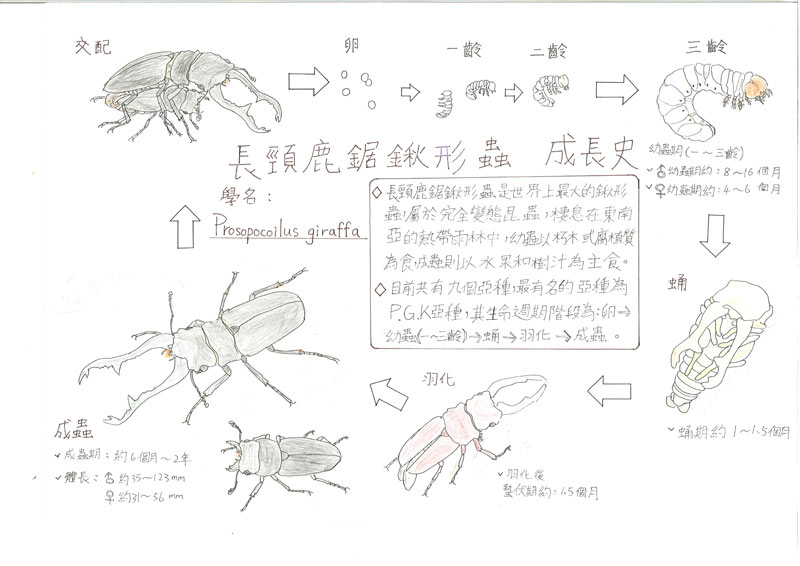 交配
卵
一齡
二齡
三齡
長頸鹿鋸鍬形蟲 成長史
幼蟲期(一~三齡)
✓♂幼蟲期約:8~16個月
✓♀幼蟲期約:4~6個月
學名:
Prosopocoilus giraffa
◇長頸鹿鋸鍬形蟲是世界上最大的鍬形
蟲,屬於完全變態昆蟲,棲息在東南
亞的熱帶雨林中,幼蟲以朽木或腐植質
為食,成蟲則以水果和樹汁為主食。
◇目前共有九個亞種,最有名的亞種為
P.G.K亞種,其生命週期階段為:卵→
幼蟲(一~三齡)→蛹→羽化→成蟲。
蛹
✓蛹期約1~1.5個月
羽化
✓羽化後
蟄伏期約:1.5個月
成蟲
✓成蟲期:約6個月~2年
✓體長:♂約35~123mm
♀約31~56mm